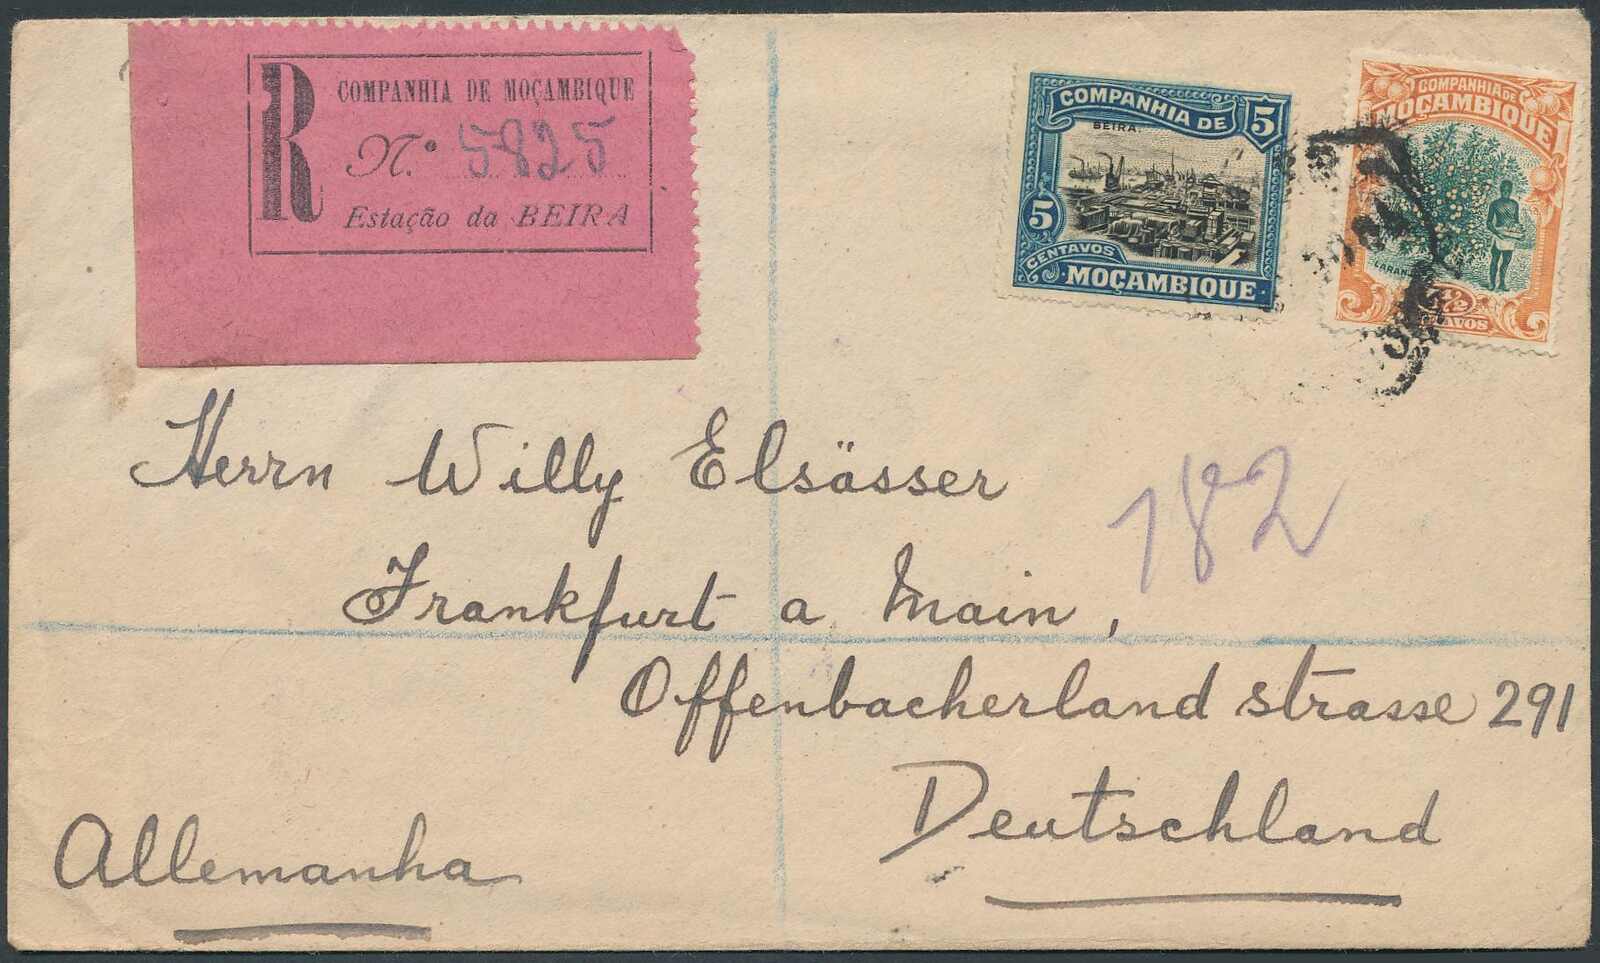 R
COMPANHIA DE MOÇAMBIQUE
N.º 5825
Estação da BEIRA
COMPANHIA DE 5
BEIRA
5
CENTAVOS
MOÇAMBIQUE
COMPANHIA DE
MOÇAMBIQUE
Herrn Willy Elsässer
182
Frankfurt a Main,
Offenbacherland strasse 291
Deutschland
Allemanha